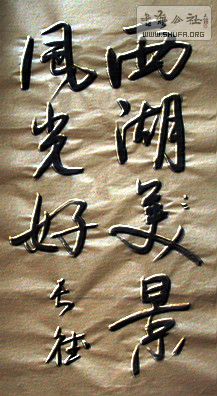 西湖美景
風光好
书法公社
WWW.SHUFA.ORG